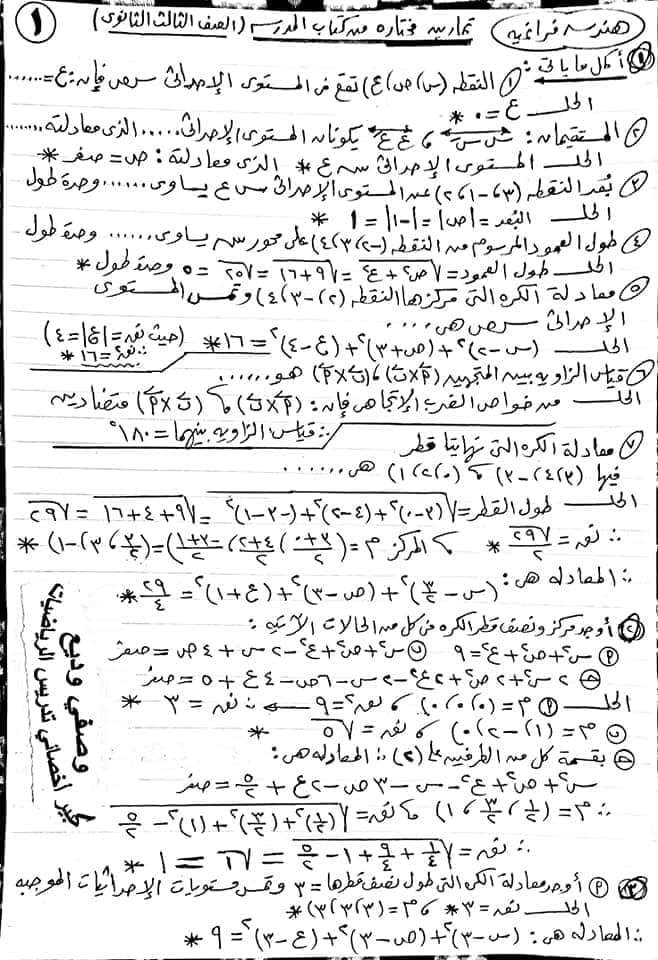 ١
هندسة فراغية
تمارين مختارة من كتاب المدرسة (الصف الثالث الثانوى)
١ أكمل ما يأتى :
١ النقطة (س، ص، ع) تقع فى المستوى الإحداثى س ص فإن: ع = ......
الحل ع = ٠ *
٢ المستقيمان : س س ، ع ع يكونان المستوى الإحداثى ..... الذى معادلته ......
الحل المستوى الإحداثى س ع * الذى معادلته : ص = صفر *
٣ بُعد النقطة (٣، -١، ٢) عن المستوى الإحداثى س ع يساوى ...... وحدة طول
الحل البُعد = |ص| = |-١| = ١ *
٤ طول العمود المرسوم من النقطة (-٢، ٣، ٤) على محور س يساوى ...... وحدة طول
الحل طول العمود = √ص²+ع² = √٩+١٦ = √٢٥ = ٥ وحدة طول *
٥ معادلة الكرة التى مركزها النقطة (٢، -٣، ٤) وتمس المستوى
الإحداثى س ص هى .....
(حيث نق = |ع| = ٤)
الحل (س-٢)² + (ص+٣)² + (ع-٤)² = ١٦ *
∴ نق² = ١٦ *
٦ قياس الزاوية بين المتجهين (م × ن) ، (ن × م) هو ......
الحل من خواص الضرب الإتجاهى فإن : (م × ن) ، (ن × م) متضادين
∴ قياس الزاوية بينهما = ١٨٠°
٧ معادلة الكرة التى نهايتا قطر
فيها (٣، ٤، -٣) ، (٠، ٢، ١) هى ......
الحل طول القطر = √(٣-٠)² + (٤-٢)² + (-٣-١)² = √٩+٤+١٦ = √٢٩
∴ نق = √٢٩/٢ * ، المركز م = (٣+٠/٢ ، ٤+٢/٢ ، -٣+١/٢) = (٣/٢ ، ٣ ، -١) *
∴ المعادلة هى : (س - ٣/٢)² + (ص-٣)² + (ع+١)² = ٢٩/٤ *
٢ أوجد مركز ونصف قطر الكرة فى كل من الحالات الآتية :
أ س²+ص²+ع² = ٩ ب س²+ص²+ع² - ٢س + ٤ص = صفر
ج ٢س²+٢ص²+٢ع² - ٢س - ٦ص - ٤ع + ٥ = صفر
الحل أ م = (٠، ٠، ٠) ، نق² = ٩ ∴ نق = ٣ *
ب م = (١، -٢، ٠) ، نق = √٥ *
ج بقسمة كل من الطرفين على (٢) ∴ المعادلة هى :
س²+ص²+ع² - س - ٣ص - ٢ع + ٥/٢ = صفر
∴ م = (١/٢ ، ٣/٢ ، ١) ، نق = √(١/٢)² + (٣/٢)² + (١)² - ٥/٢
∴ نق = √١/٤ + ٩/٤ + ١ - ٥/٢ = √١ = ١ *
٣ أ أوجد معادلة الكرة التى طول نصف قطرها = ٣ وتمس مستويات الإحداثيات الموجبة
الحل نق = ٣ * ، م = (٣، ٣، ٣) *
∴ المعادلة هى : (س-٣)² + (ص-٣)² + (ع-٣)² = ٩ *
وصفي وديع
كبير أخصائي تدريس الرياضيات